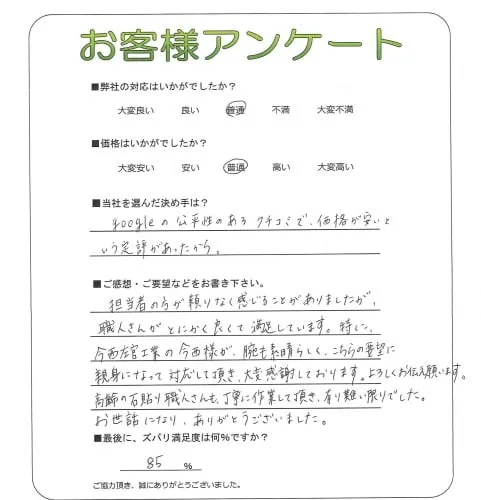 お客様アンケート
■弊社の対応はいかがでしたか？
大変良い 良い 普通 不満 大変不満
■価格はいかがでしたか？
大変安い 安い 普通 高い 大変高い
■当社を選んだ決め手は？
googleの公平性のあるクチコミで、価格が安いと
いう定評があったから。
■ご感想・ご要望などをお書き下さい。
担当者の方が頼りなく感じることがありましたが、
職人さんがとにかく良くて満足しています。特に、
今西左官工業の今西様が、腕も素晴らしく、こちらの要望に
親身になって対応して頂き、大変感謝しております。よろしくお伝え願います。
高齢の石貼り職人さんも、丁寧に作業して頂き、有り難い限りでした。
お世話になり、ありがとうございました。
■最後に、ズバリ満足度は何%ですか？
85 %
ご協力頂き、誠にありがとうございました。